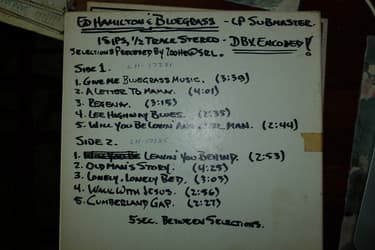 ED HAMILTON & BLUEGRASS - LP SUBMASTER.
15 IPS, 1/2 TRACK STEREO - DBX ENCODED!
SELECTIONS PRECEDED BY 700Hz @ SRL.
SIDE 1.
1. GIVE ME BLUEGRASS MUSIC. (3:39)
2. A LETTER TO MAMA. (4:01)
3. (3:15)
4. LEE HIGHWAY BLUES. (2:35)
5. WILL YOU BE LOVIN' ANOTHER MAN. (2:44)
SIDE 2.
1. LEAVIN' YOU BEHIND. (2:53)
2. OLD MAN'S STORY. (4:25)
3. LONELY, LONELY BED. (3:03)
4. WALK WITH JESUS. (2:56)
5. CUMBERLAND GAP. (2:27)
5 SEC. BETWEEN SELECTIONS.